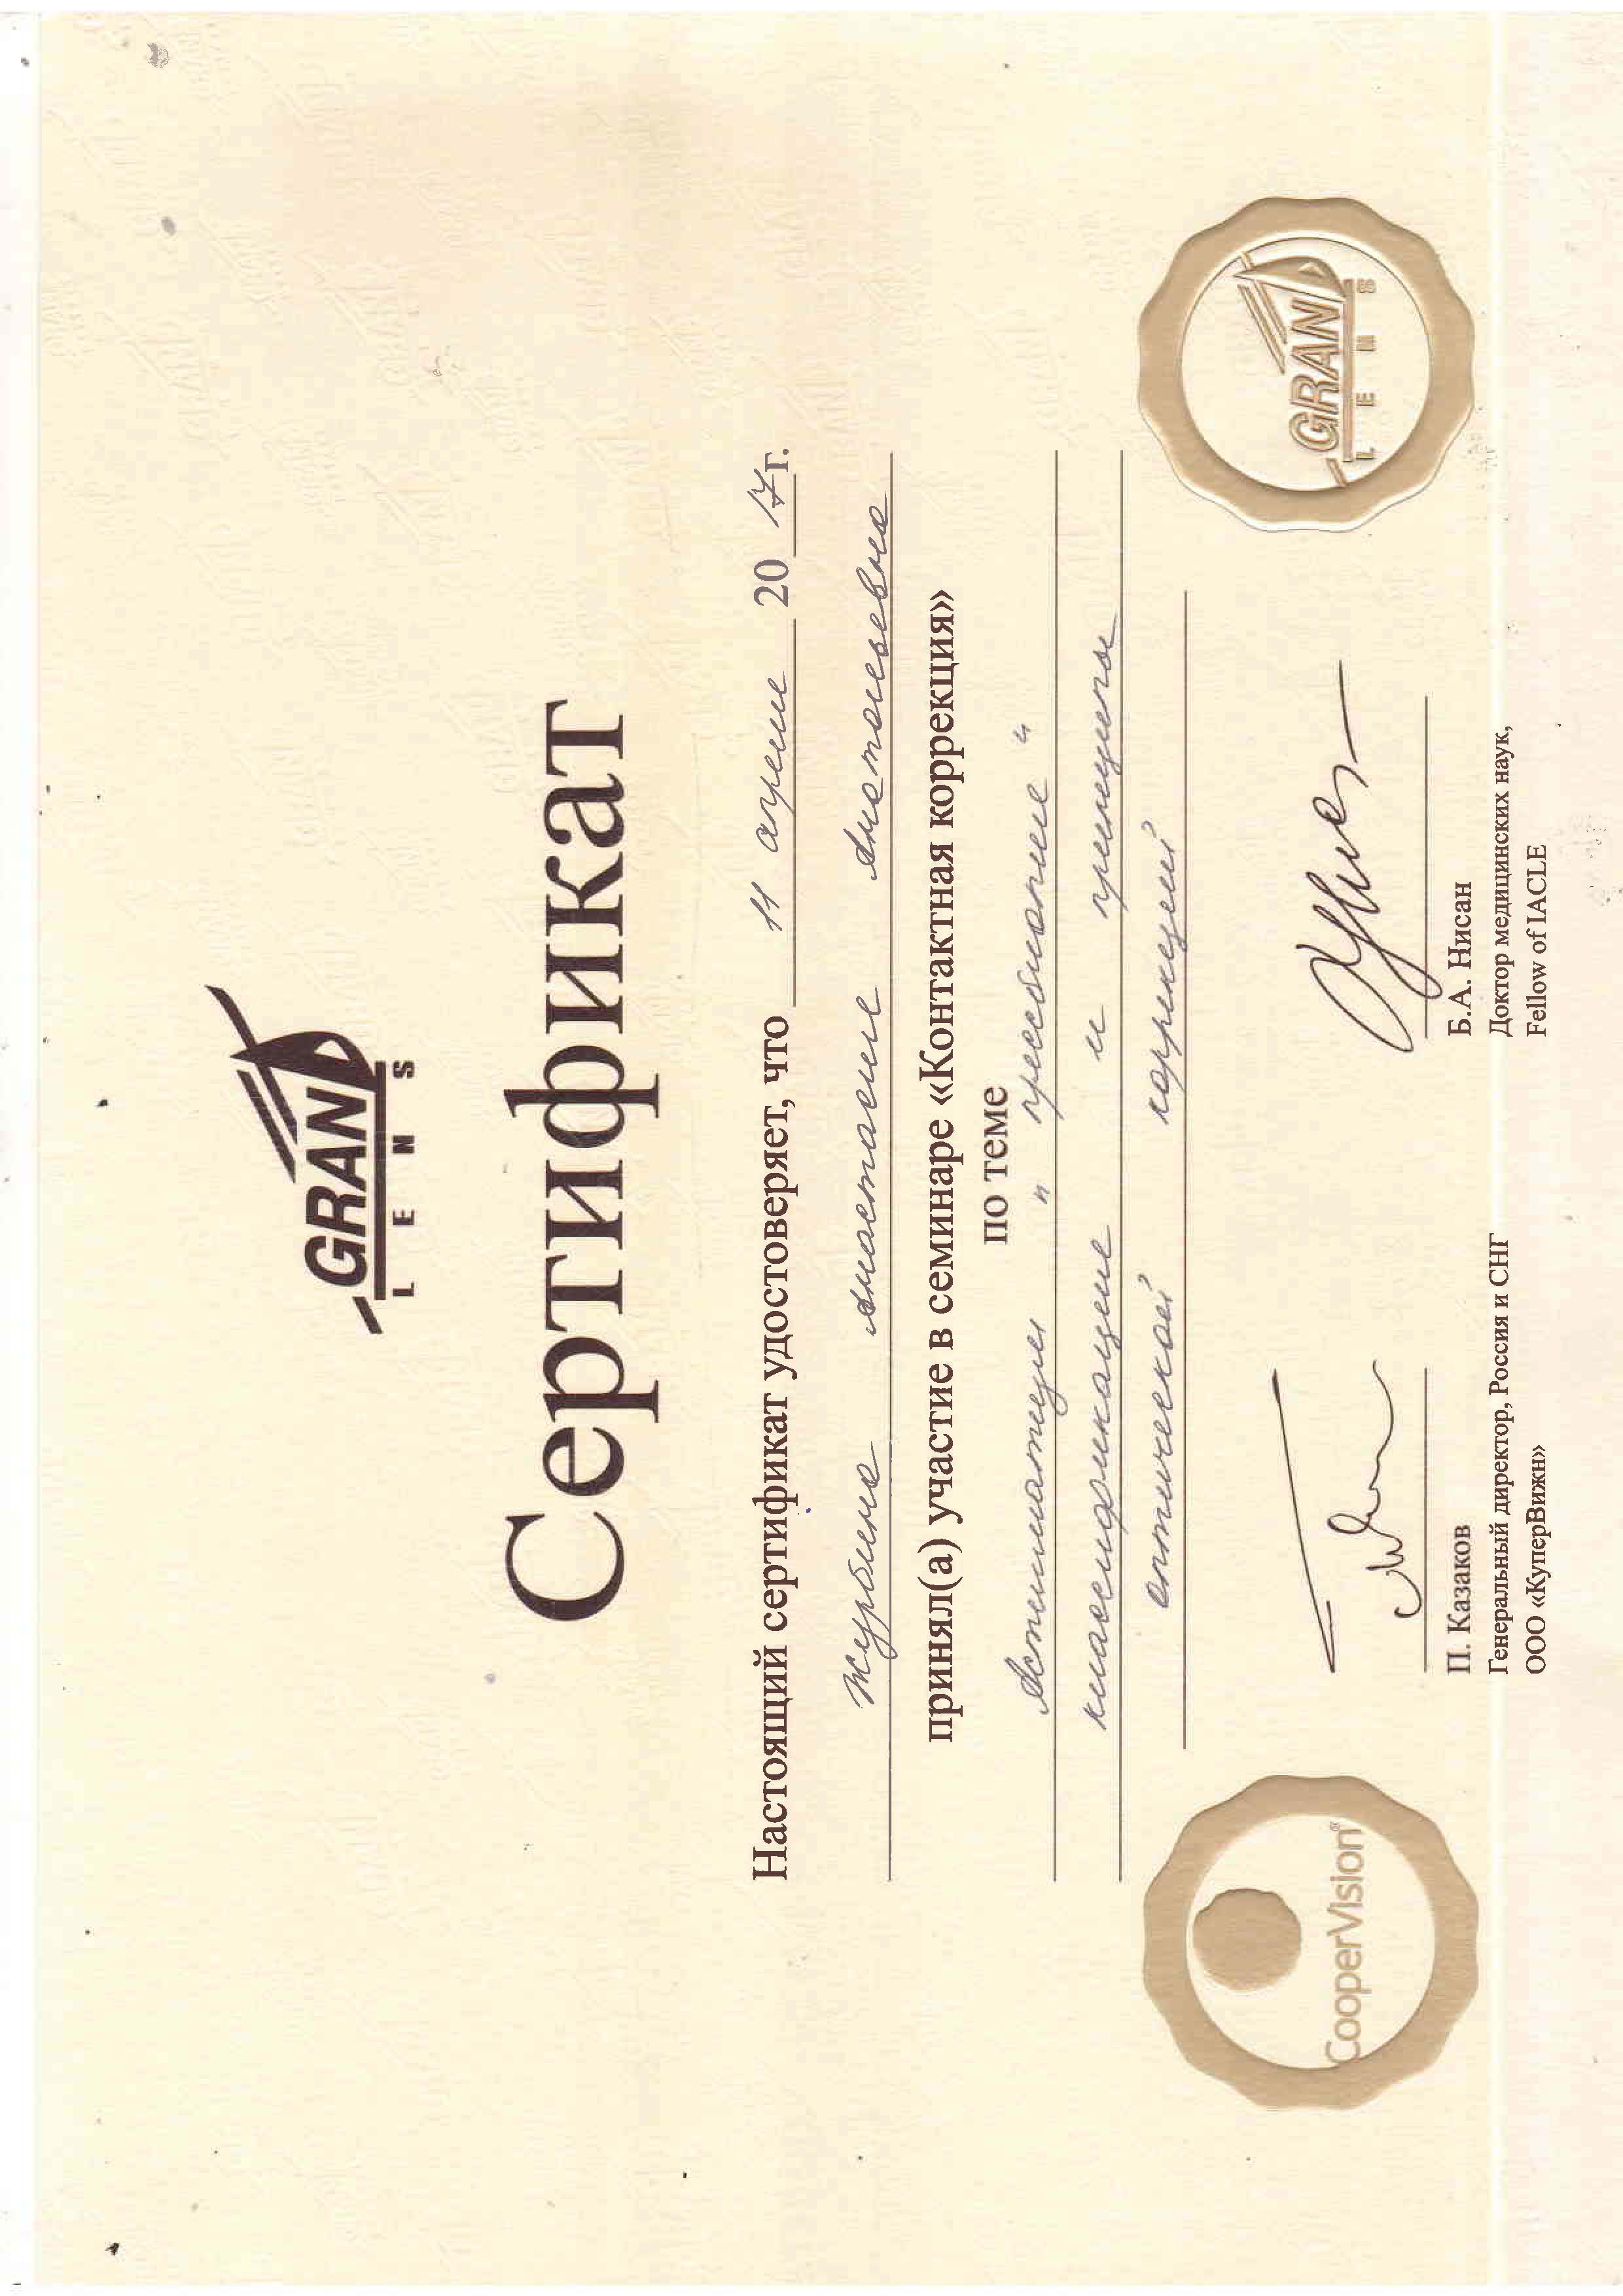 GRAN
LENS
Сертификат
Настоящий сертификат удостоверяет, что 11 апреля 20 17 г.
Журбина Анастасия Анатольевна
принял(а) участие в семинаре «Контактная коррекция»
по теме
Астигматизм " пресбиопия "
классификация и принципы
оптической коррекции
CooperVision
П. Казаков
Генеральный директор, Россия и СНГ
ООО «КуперВижн»
Б.А. Нисан
Доктор медицинских наук,
Fellow of IACLE
GRAN
LENS